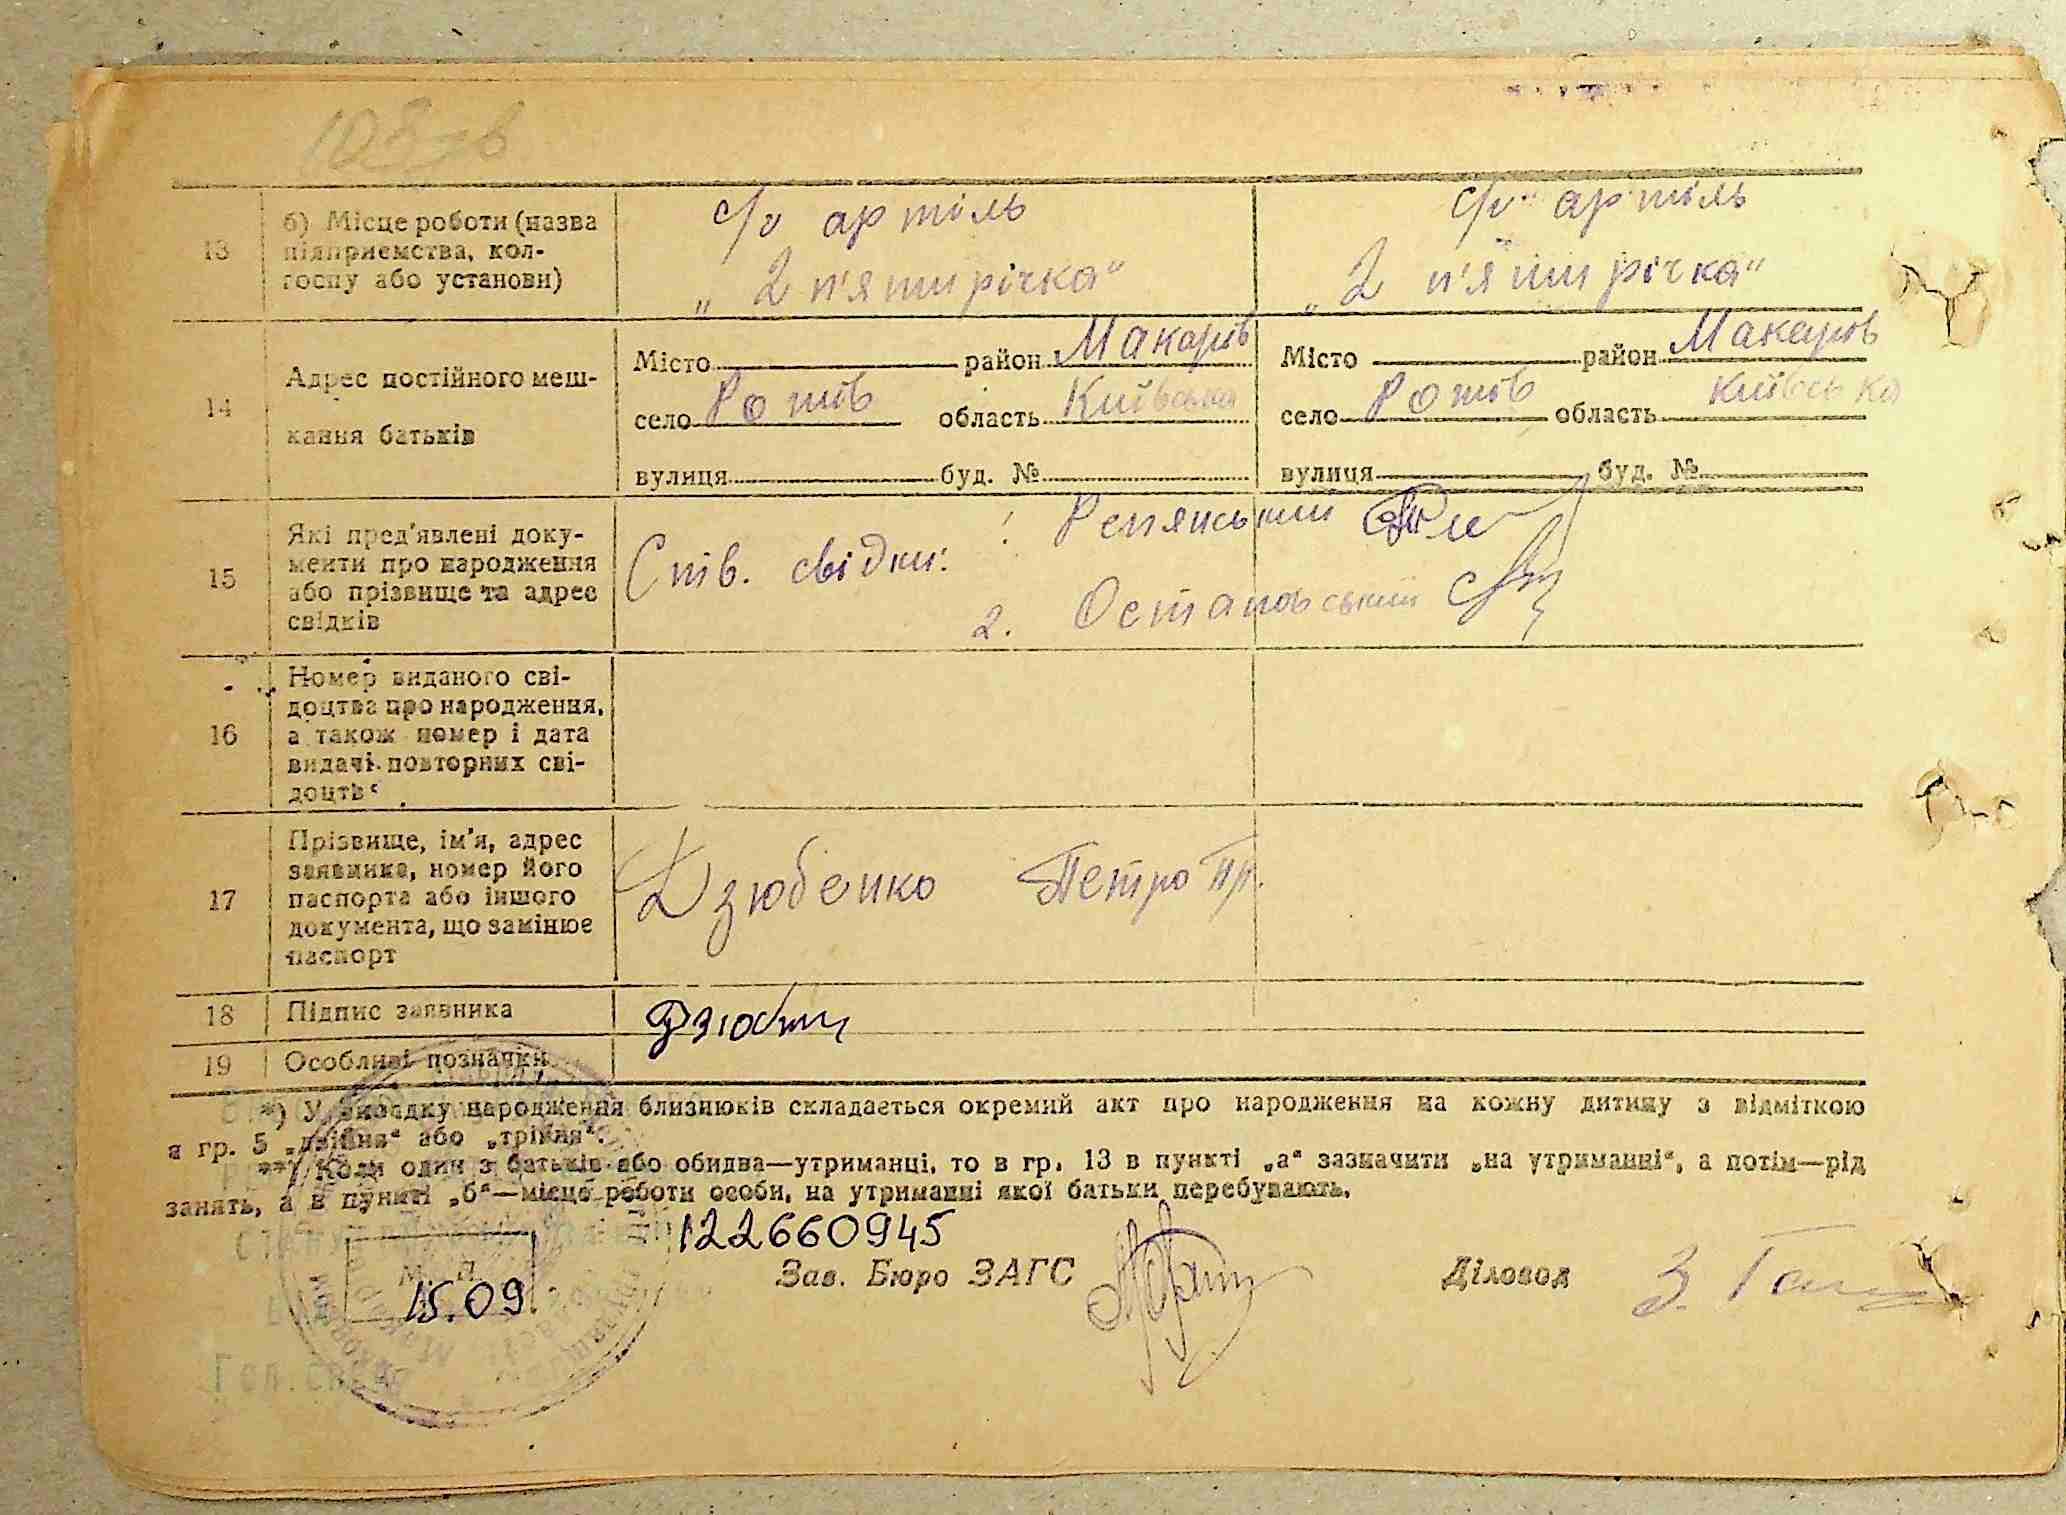 108 зв
13
б) Місце роботи (назва
підприємства, кол-
госпу або установи)
с/г артіль
„2 п'ятирічка“
с/г артіль
„2 п'ятирічка“
14
Адрес постійного меш-
кання батьків
Місто район Макарів
село Ротів область Київська
вулиця буд. №
Місто район Макарів
село Ротів область Київська
вулиця буд. №
15
Які пред'явлені доку-
менти про народження
або прізвище та адрес
свідків
Ств. свідки:
Репянський
2. Остановський
16
Номер виданого сві-
доцтва про народження,
а також номер і дата
видачі повторних сві-
доцтв
17
Прізвище, ім'я, адрес
заявника, номер його
паспорта або іншого
документа, що замінює
паспорт
Дзюбенко Петро Пр.
18
Підпис заявника
19
Особливі позначки
*) У випадку народження близнюків складається окремий акт про народження на кожну дитину з відміткою
в гр. 5 „двійня“ або „трійня“.
**) Коли один з батьків або обидва—утриманці, то в гр. 13 в пункті „а“ зазначити „на утриманні“, а потім—рід
занять, а в пункті „б“—місце роботи особи, на утриманні якої батьки перебувають.
122660945
М. П.
15.09
Зав. Бюро ЗАГС
Діловод